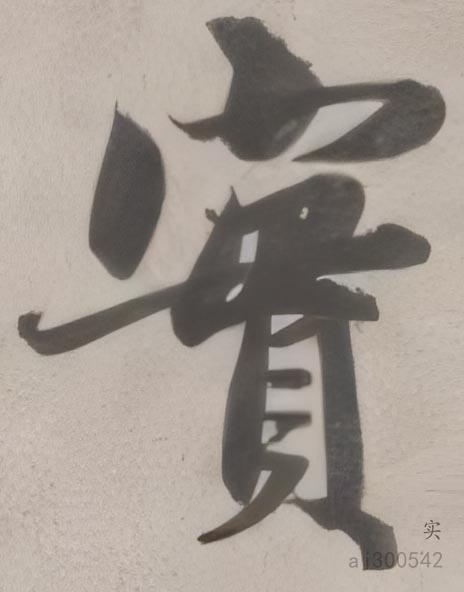 實
实
ali300542